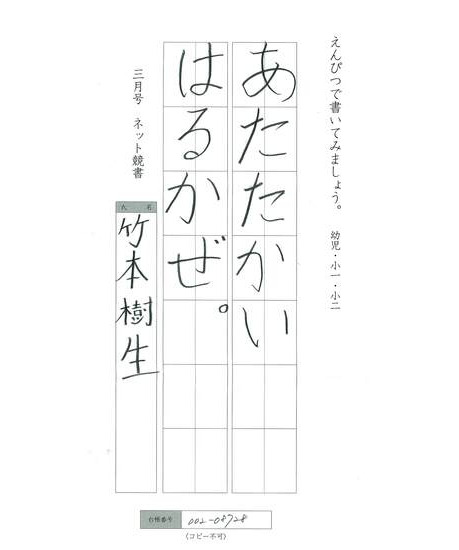 えんぴつで書いてみましょう。 幼児・小一・小二
あたたかい
はるかぜ。
三月号 ネット競書
氏名
竹本樹生
台帳番号 002-08728
(コピー不可)